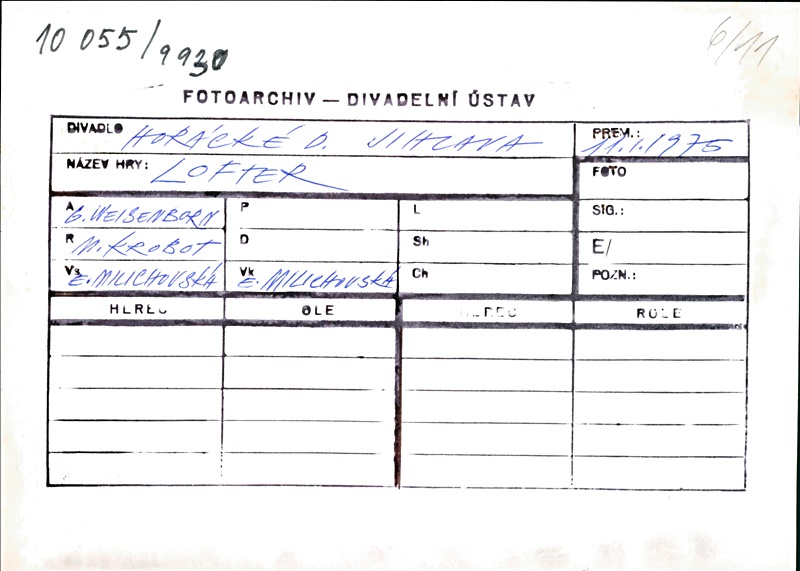 10 055/9930
6/11
FOTOARCHIV — DIVADELNÍ ÚSTAV
DIVADLO HORÁCKÉ D. JIHLAVA PREM.: 11.1.1975
NÁZEV HRY: LOFTER FOTO
A G. WEISENBORN P L SIG.:
R M. KROBOT D Sh E/
Vs E. MILICHOVSKÁ Vk E. MILICHOVSKÁ Ch POZN.:
HEREC OLE HEREC ROLE